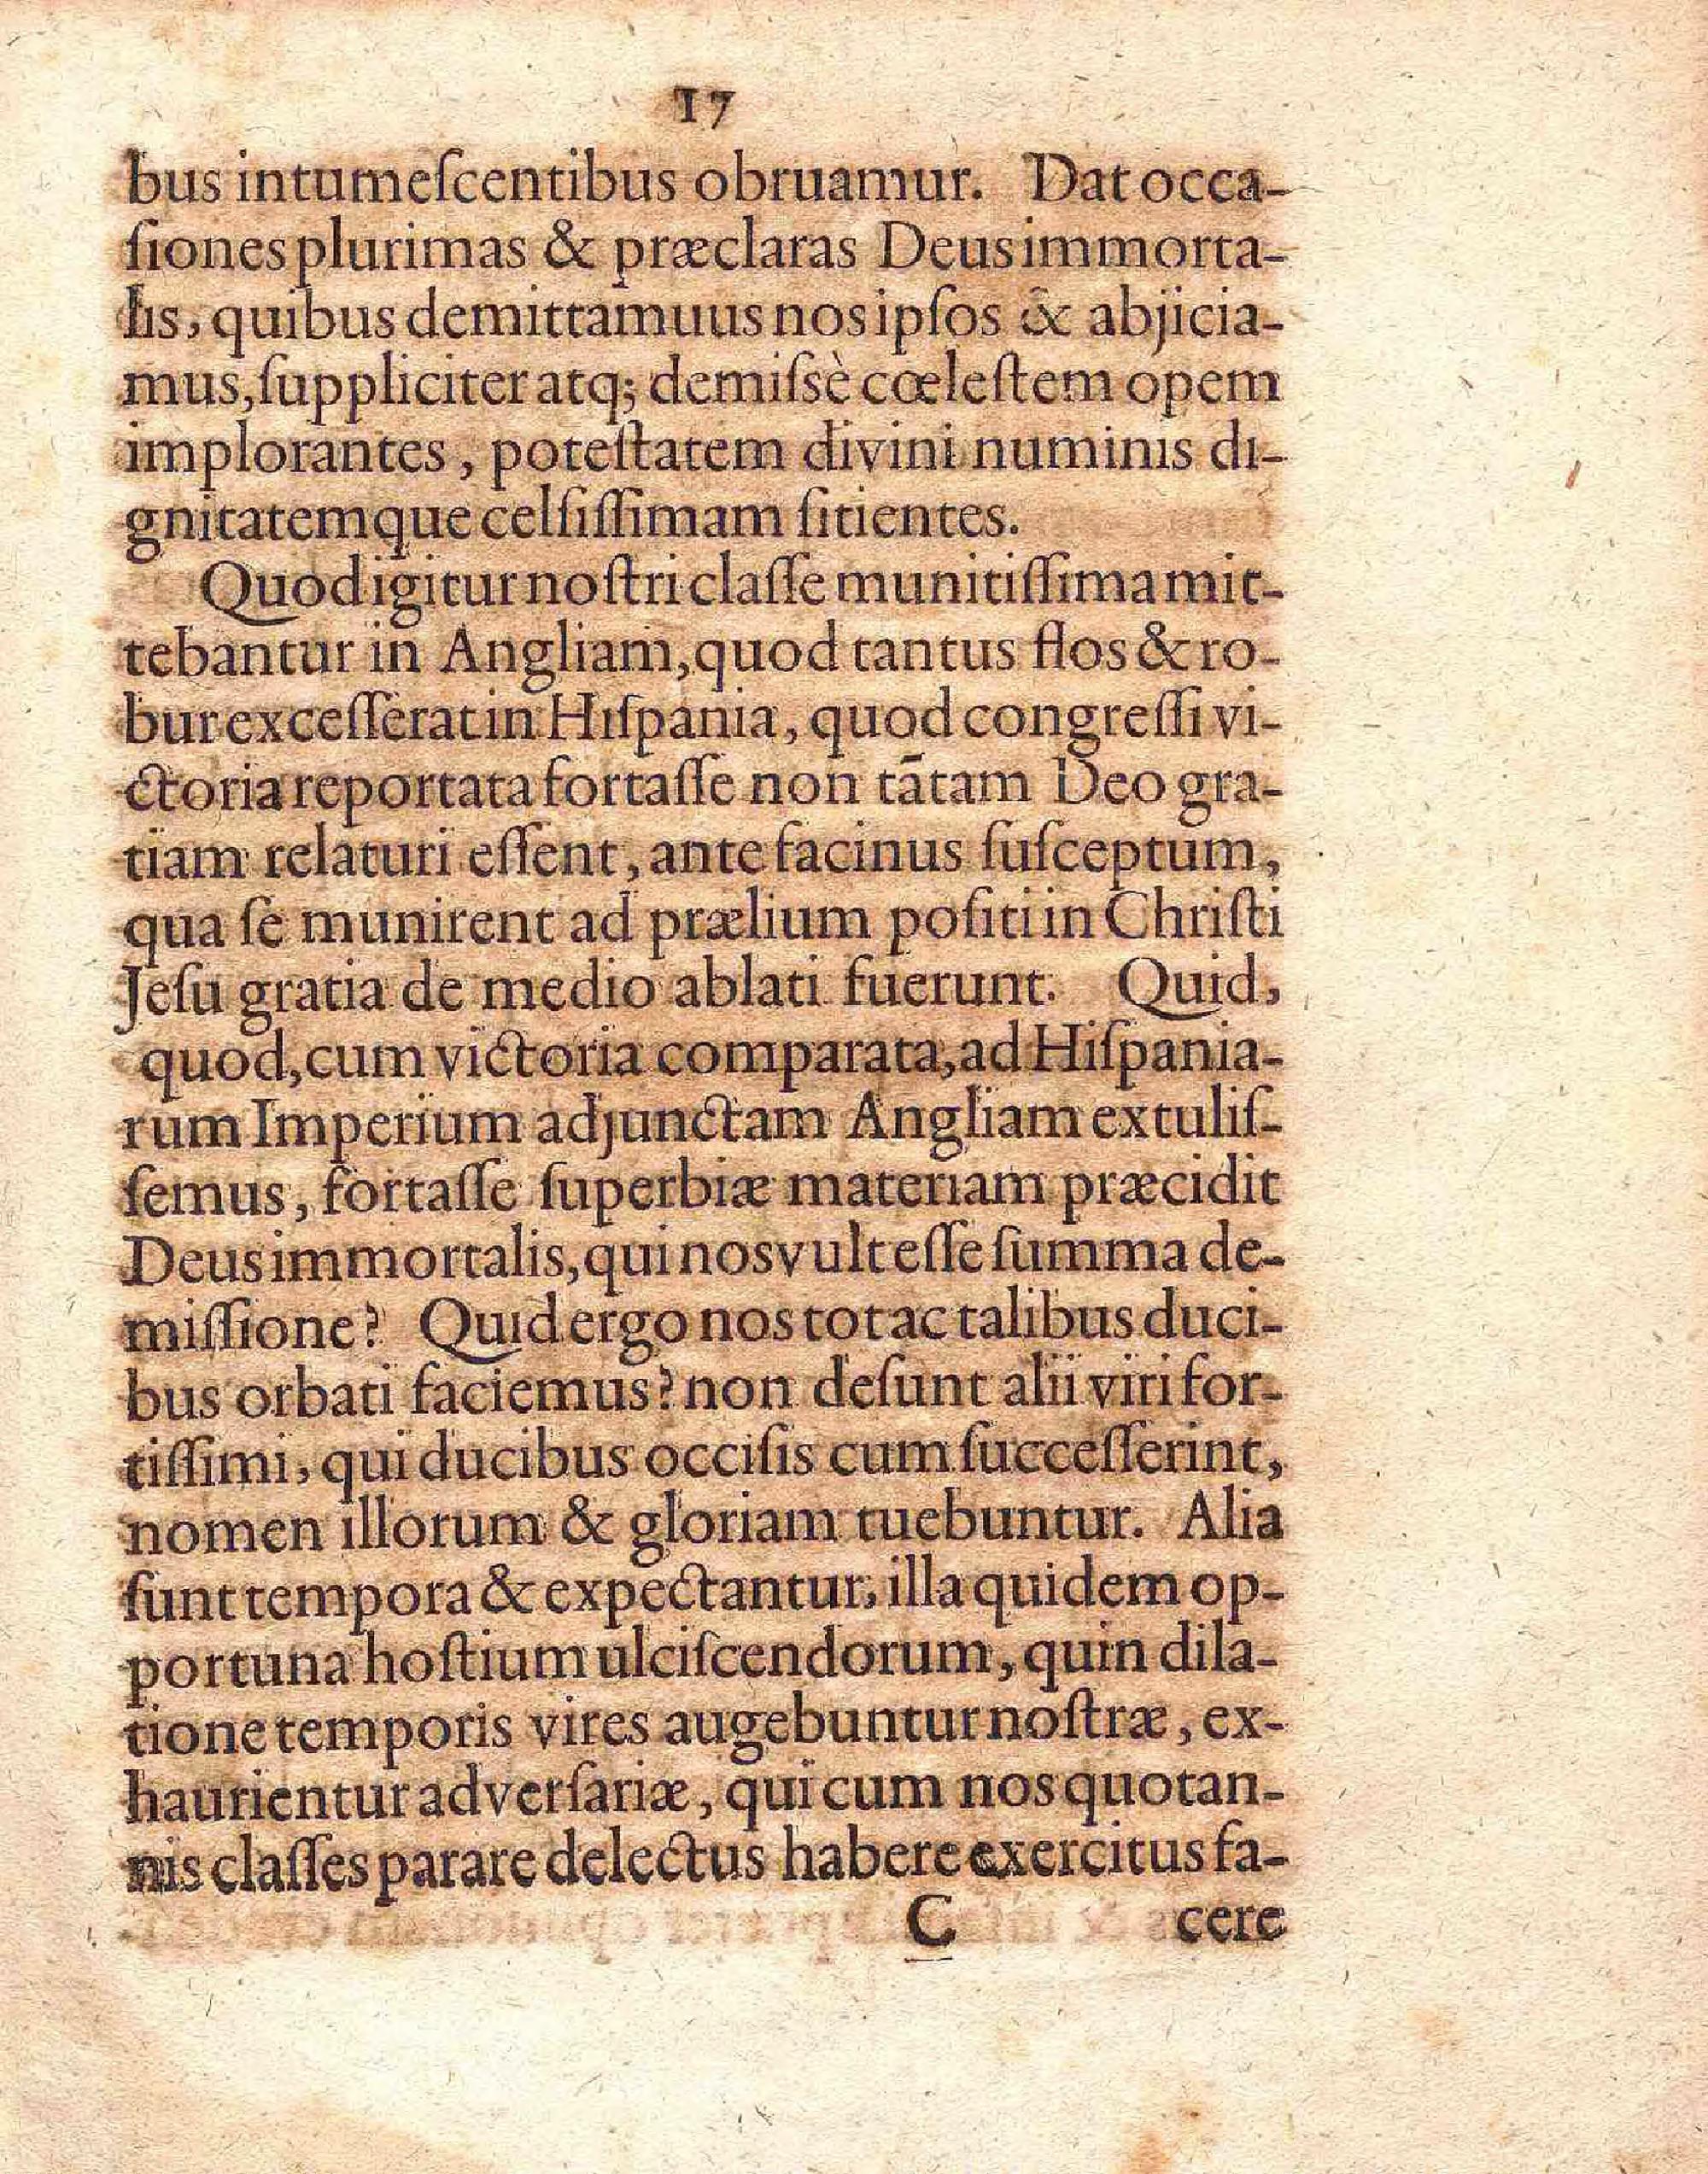 17
bus intumeſcentibus obruamur. Dat occa-
ſiones plurimas & præclaras Deus immorta-
lis, quibus demittamuus nos ipſos & abjicia-
mus, ſuppliciter atq; demiſsè cœleſtem opem
implorantes, poteſtatem divini numinis di-
gnitatemque celſiſſimam ſitientes.
Quod igitur noſtri claſſe munitiſſima mit-
tebantur in Angliam, quod tantus flos & ro-
bur exceſſerat in Hiſpania, quod congreſſi vi-
ctoria reportata fortaſſe non tātam Deo gra-
tiam relaturi eſſent, ante facinus ſuſceptum,
qua ſe munirent ad prælium poſiti in Chriſti
Jeſu gratia de medio ablati fuerunt. Quid,
quod, cum victoria comparata, ad Hiſpania-
rum Imperium adjunctam Angliam extuliſ-
ſemus, fortaſſe ſuperbiæ materiam præcidit
Deus immortalis, qui nos vult eſſe ſumma de-
miſſione? Quid ergo nos tot ac talibus duci-
bus orbati faciemus? non deſunt alii viri for-
tiſſimi, qui ducibus occiſis cum ſucceſſerint,
nomen illorum & gloriam tuebuntur. Alia
ſunt tempora & expectantur, illa quidem op-
portuna hoſtium ulciſcendorum, quin dila-
tione temporis vires augebuntur noſtræ, ex-
haurientur adverſariæ, qui cum nos quotan-
nis claſſes parare delectus habere exercitus fa-
C cere